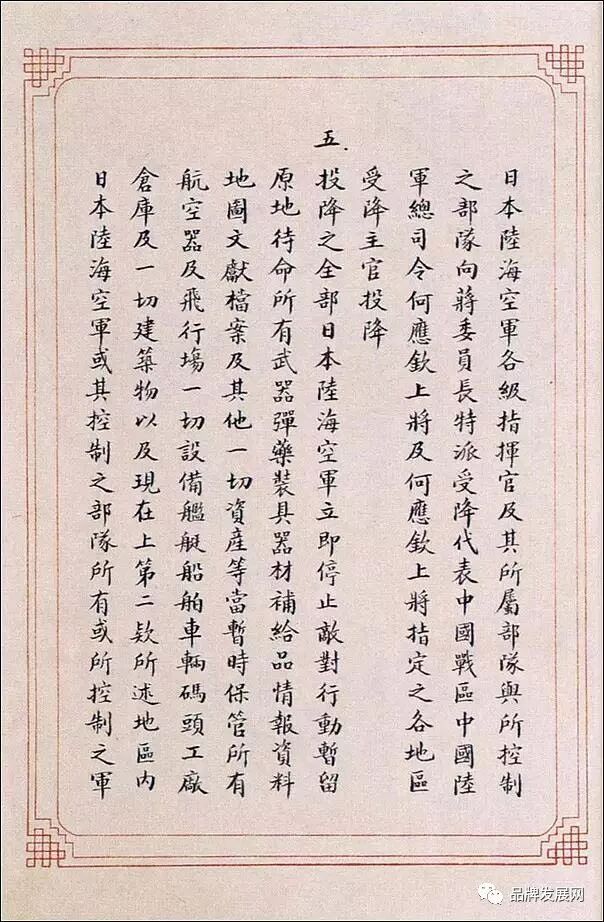 日本陸海空軍各級指揮官及其所屬部隊與所控制
之部隊向蔣委員長特派受降代表中國戰區中國陸
軍總司令何應欽上將及何應欽上將指定之各地區
受降主官投降
五.
投降之全部日本陸海空軍立即停止敵對行動暫留
原地待命所有武器彈藥裝具器材補給品情報資料
地圖文獻檔案及其他一切資產等當暫時保管所有
航空器及飛行場一切設備艦艇船舶車輛碼頭工廠
倉庫及一切建築物以及現在上第二欵所述地區內
日本陸海空軍或其控制之部隊所有或所控制之軍
品牌发展网